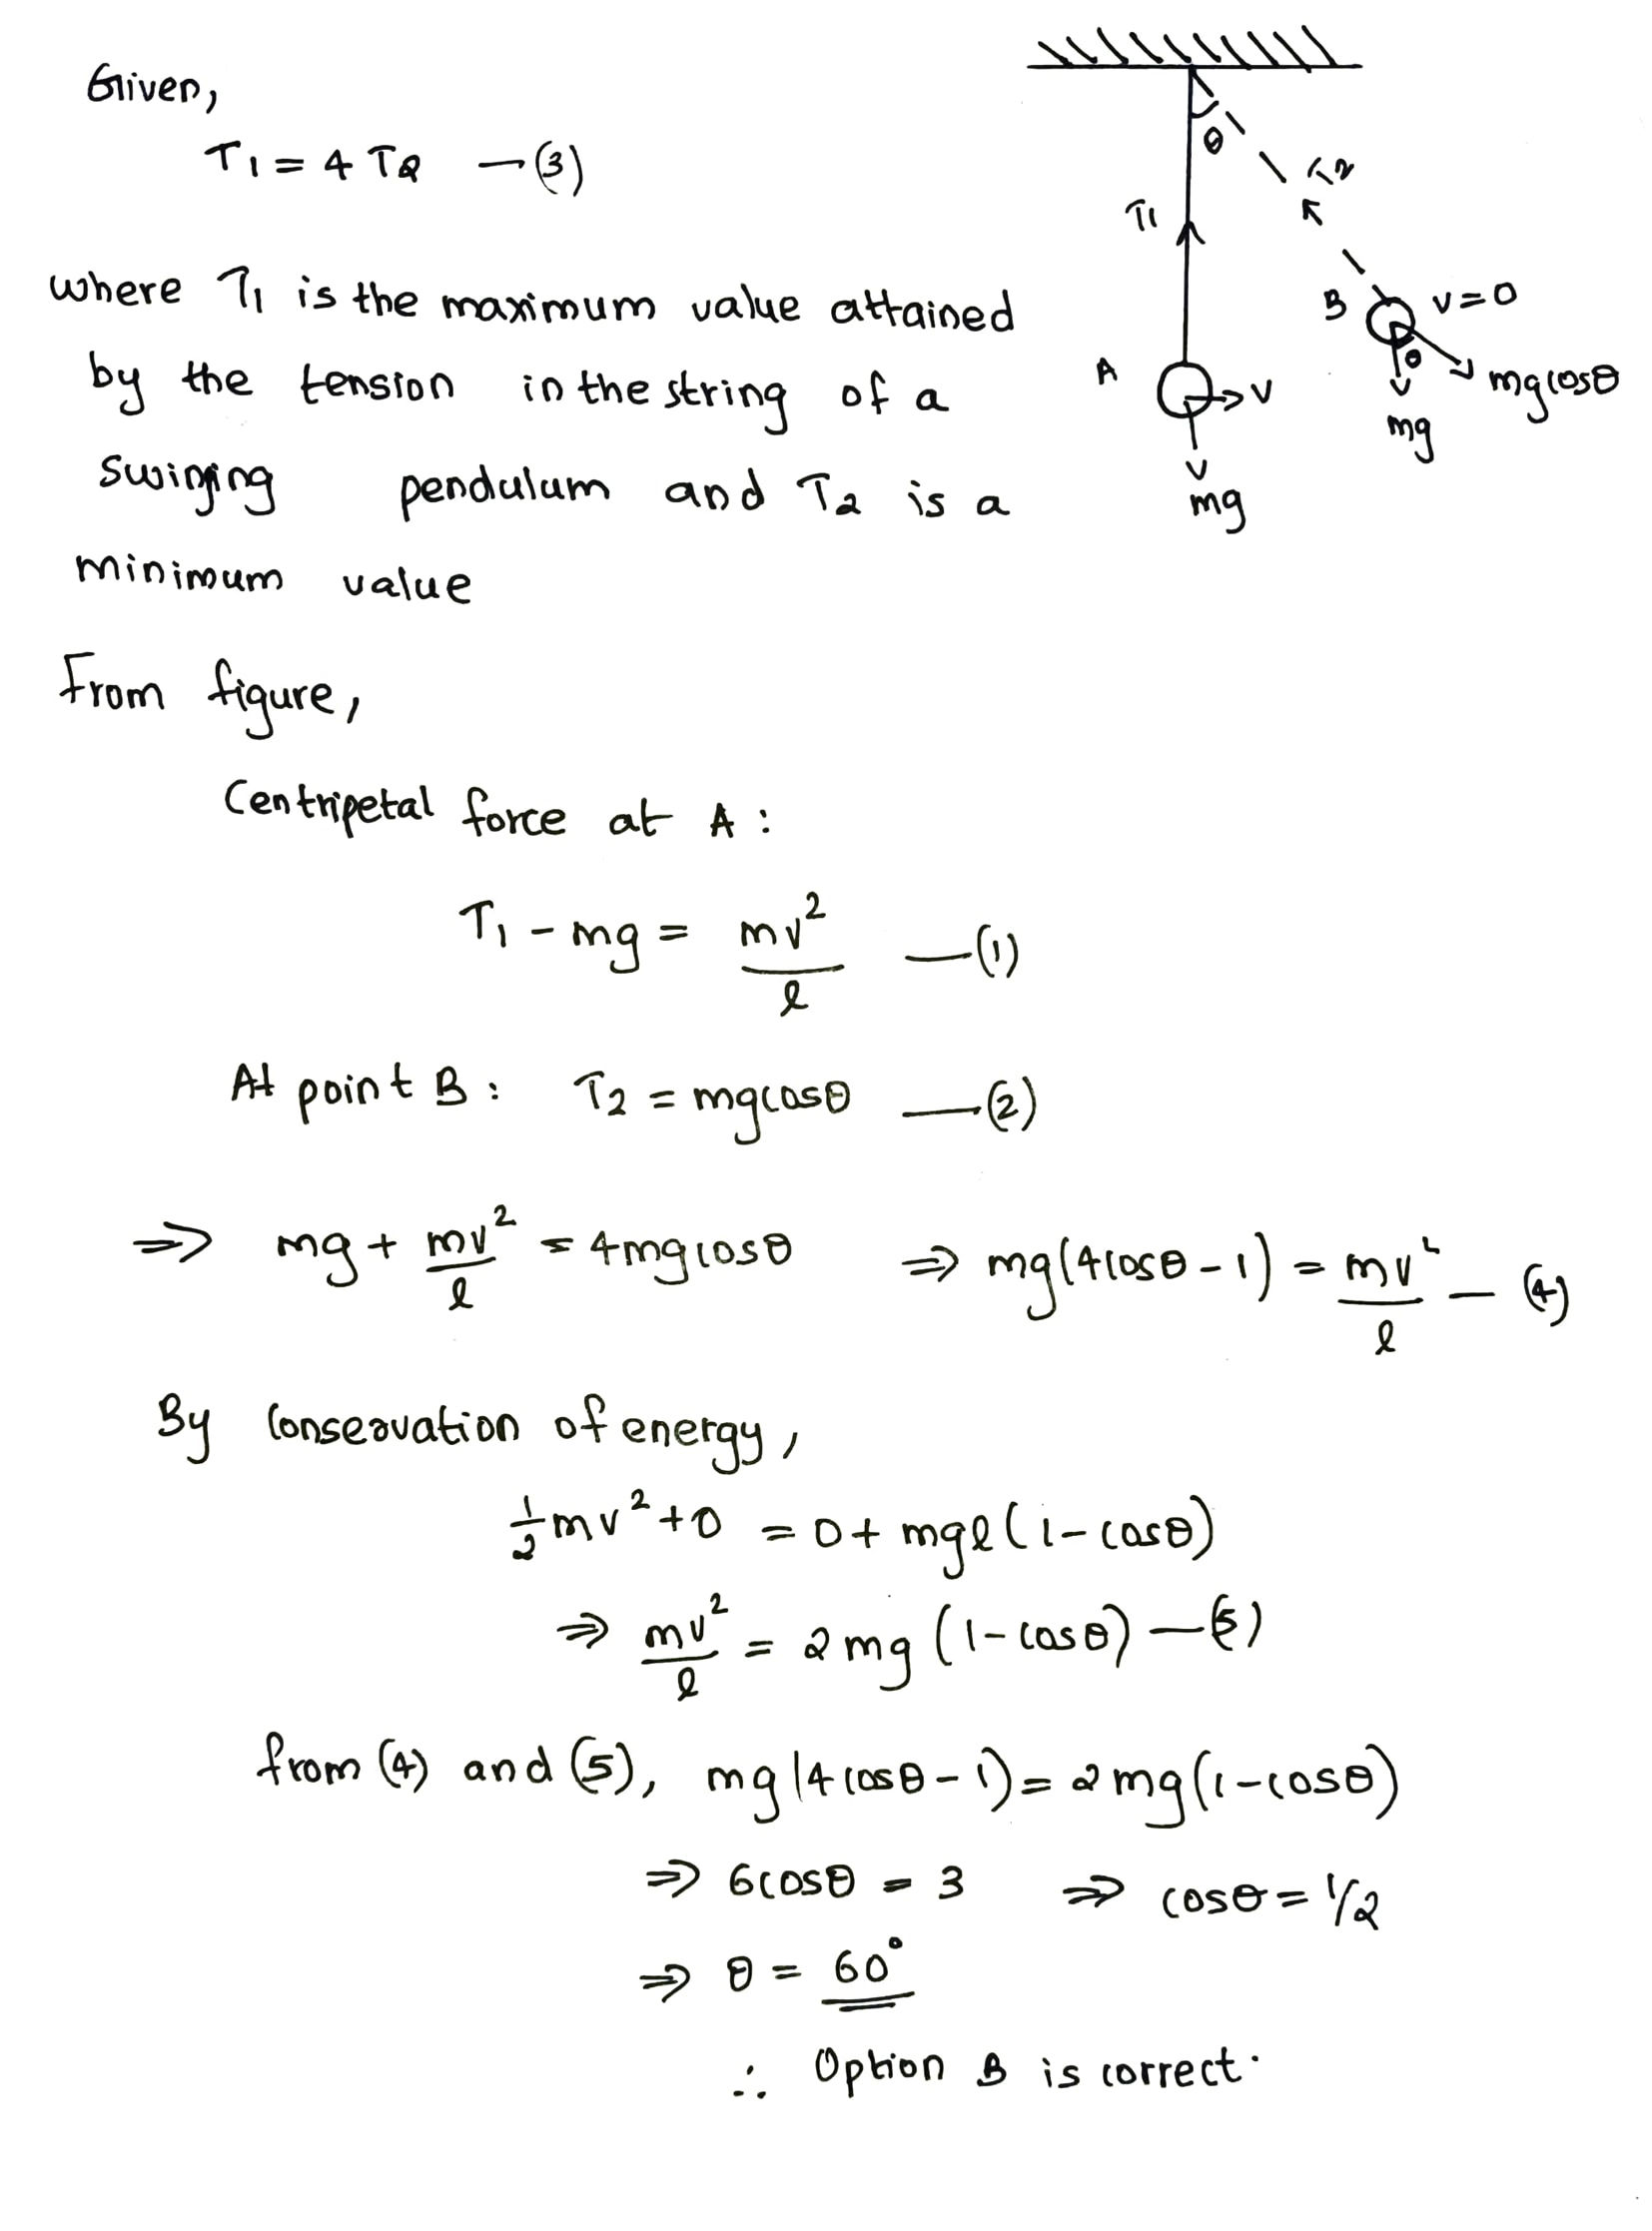 Given,
T1 = 4 T2 — (3)
where T1 is the maximum value attained
by the tension in the string of a
swinging pendulum and T2 is a
minimum value
θ
T2
T1
B v=0
θ
mgcosθ
mg
A v
mg
From figure,
Centripetal force at A :
T1 - mg = mv²/l — (1)
At point B : T2 = mgcosθ — (2)
⇒ mg + mv²/l = 4mgcosθ ⇒ mg(4cosθ - 1) = mv²/l — (4)
By conservation of energy,
½mv² + 0 = 0 + mgl(1 - cosθ)
⇒ mv²/l = 2mg (1 - cosθ) — (5)
from (4) and (5), mg(4cosθ - 1) = 2mg(1 - cosθ)
⇒ 6cosθ = 3 ⇒ cosθ = 1/2
⇒ θ = 60°
∴ Option B is correct.